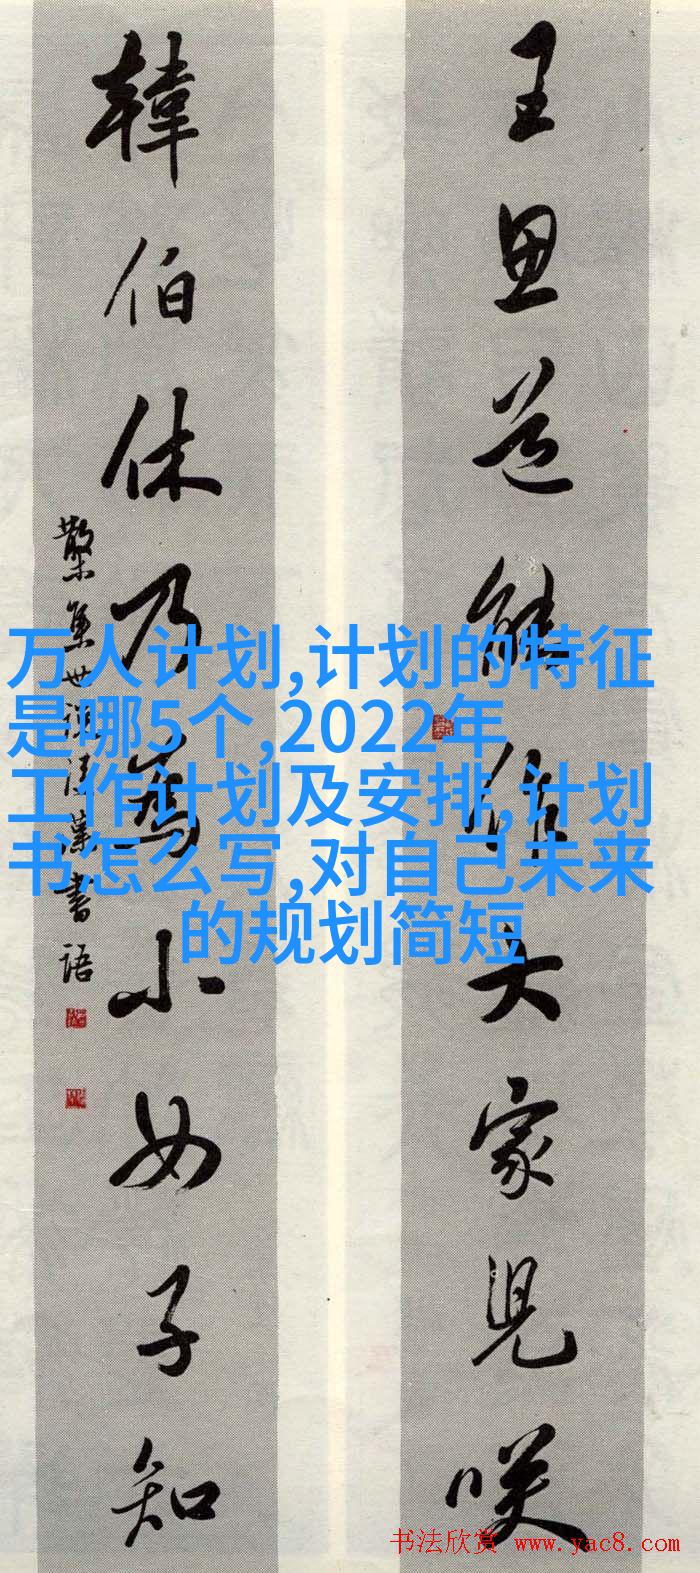 王思道能作大家兒咲
韓伯休乃為小女子知
散桼集世說清溪書語
万人计划,计划的特征
是哪5个,2022年
工作计划及安排,计划
书怎么写,对自己未来
的规划简短
书法欣赏 www.yac8.com